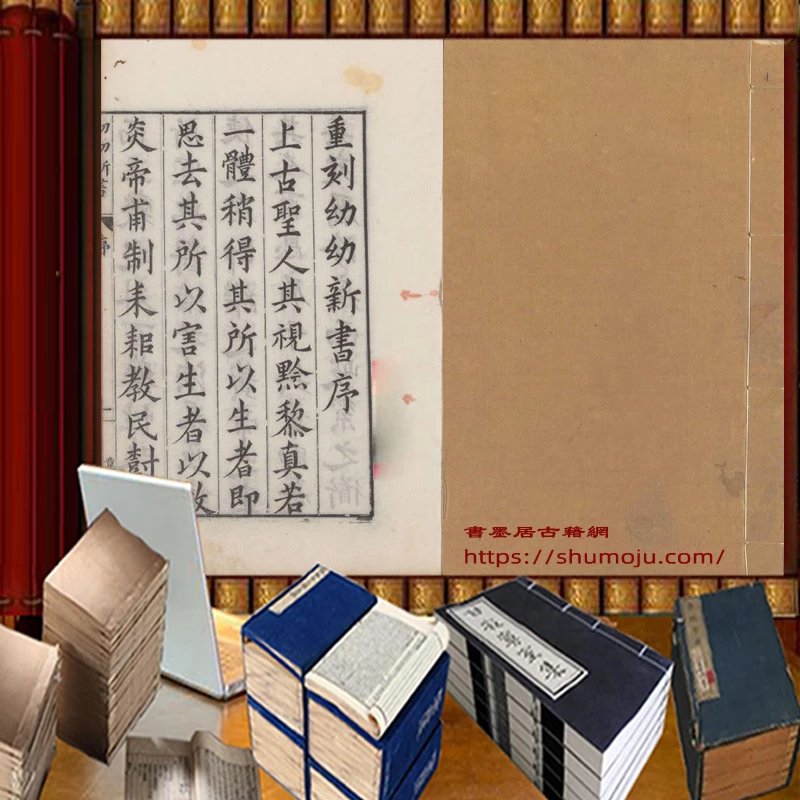 重刻幼幼新書序
上古聖人其視黔黎真若
一體稍得其所以生者即
思去其所以害生者以故
炎帝甫制耒耜教民
序
書墨居古籍網
https://shumoju.com/